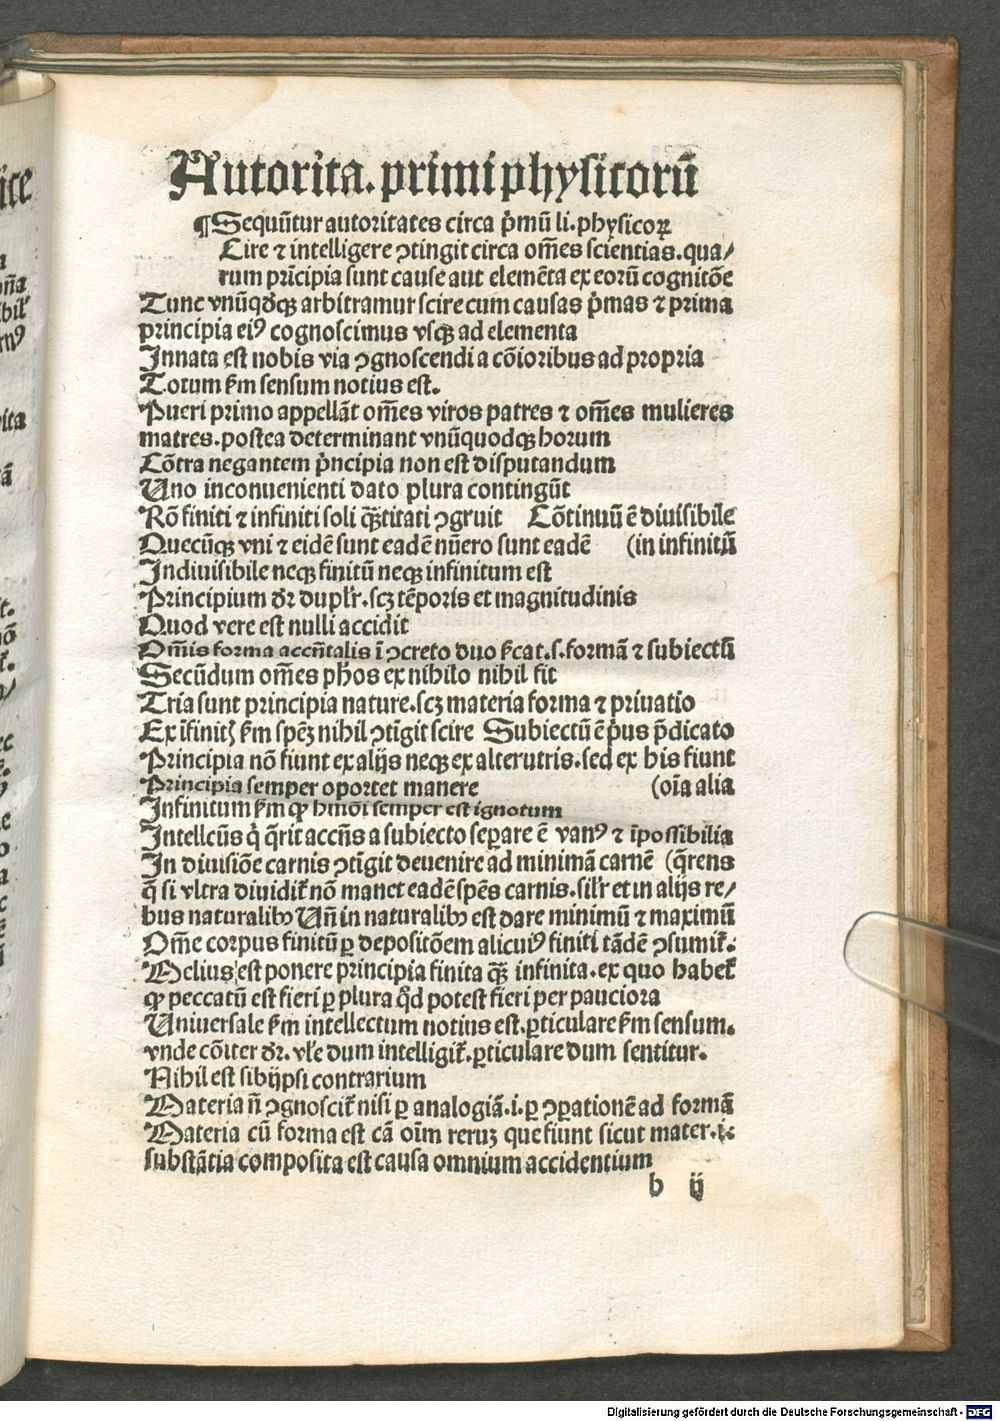 Autorita. primi physicorū
¶ Sequūtur autoritates circa p̄mū li. physicoꝝ
Cire ⁊ intelligere ↄtingit circa om̄es scientias. qua/
rum prīcipia sunt cause aut elemēta ex eorū cognitōe
Tunc vnūqd̄qꝫ arbitramur scire cum causas p̄mas ⁊ prima
principia eiꝰ cognoscimus vsqꝫ ad elementa
Innata est nobis via ↄgnoscendi a cōioribus ad propria
Totum ẜm sensum notius est.
Pueri primo appellāt om̄es viros patres ⁊ om̄es mulieres
matres. postea determinant vnūquodqꝫ horum
Cōtra negantem p̄ncipia non est disputandum
Uno inconuenienti dato plura contingūt
Rō finiti ⁊ infiniti soli q̄ꝫtitati ↄgruit Cōtinuū ē diuisibile
Quecūqꝫ vni ⁊ eidē sunt eadē nūero sunt eadē (in infinitū
Indiuisibile neqꝫ finitū neqꝫ infinitum est
Principium dr̄ duplr̄. scꝫ tēporis et magnitudinis
Quod vere est nulli accidit
Om̄is forma accn̄talis ī ↄcreto duo ẜcat. s. formā ⁊ subiectū
Secūdum om̄es ph̄os ex nihilo nihil fit
Tria sunt principia nature. scꝫ materia forma ⁊ priuatio
Ex īfinitꝭ ẜm spēꝫ nihil ↄtīgit scire Subiectū ē p̄us p̄dicato
Principia nō fiunt ex alijs neqꝫ ex alterutris. sed ex his fiunt
Principia semper oportet manere (oīa alia
Infinitum ẜm ꝙ hmōi semper est ignotum
Intellcūs q̇ q̄rit accn̄s a subiecto sep̲are ē vanꝰ ⁊ īpossibilia
In diuisiōe carnis ↄtīgit deuenire ad minimā carnē (q̄rens
q̄ si vltra diuidit̄ nō manet eadē spēs carnis. silr̄ et in alijs re/
bus naturalibꝫ Un̄ in naturalibꝫ est dare minimū ⁊ maximū
Om̄e corpus finitū ꝑ depositōem alicuiꝰ finiti tādē ↄsumit̄.
Melius est ponere principia finita q̄ꝫ infinita. ex quo habet̄
ꝙ peccatū est fieri ꝑ plura qd̄ potest fieri per pauciora
Uniuersale ẜm intellectum notius est. ꝑticulare ẜm sensum.
vnde cōiter dr̄. vl̄e dum intelligit̄. ꝑticulare dum sentitur.
Nihil est sibijpsi contrarium
Materia n̄ ↄgnoscit̄ nisi ꝑ analogiā. i. ꝑ ↄꝑationē ad formā
Materia cū forma est cā oīm reruꝫ que fiunt sicut mater. i.
substātia composita est causa omnium accidentium
b ij
Digitalisierung gefördert durch die Deutsche Forschungsgemeinschaft - DFG